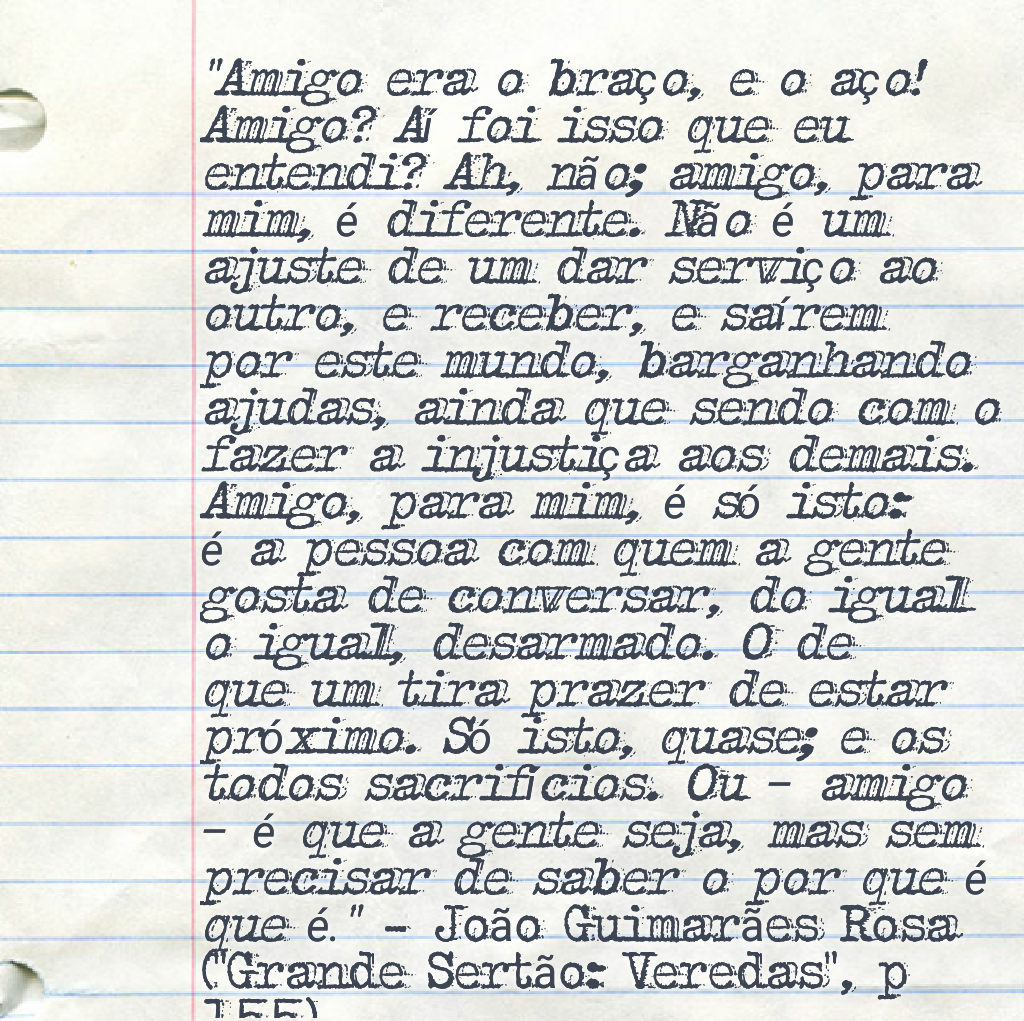 "Amigo era o braço, e o aço!
Amigo? Aí foi isso que eu
entendi? Ah, não; amigo, para
mim, é diferente. Não é um
ajuste de um dar serviço ao
outro, e receber, e saírem
por este mundo, barganhando
ajudas, ainda que sendo com o
fazer a injustiça aos demais.
Amigo, para mim, é só isto:
é a pessoa com quem a gente
gosta de conversar, do igual
o igual, desarmado. O de
que um tira prazer de estar
próximo. Só isto, quase; e os
todos sacrifícios. Ou - amigo
- é que a gente seja, mas sem
precisar de saber o por que é
que é." - João Guimarães Rosa
("Grande Sertão: Veredas", p
155)